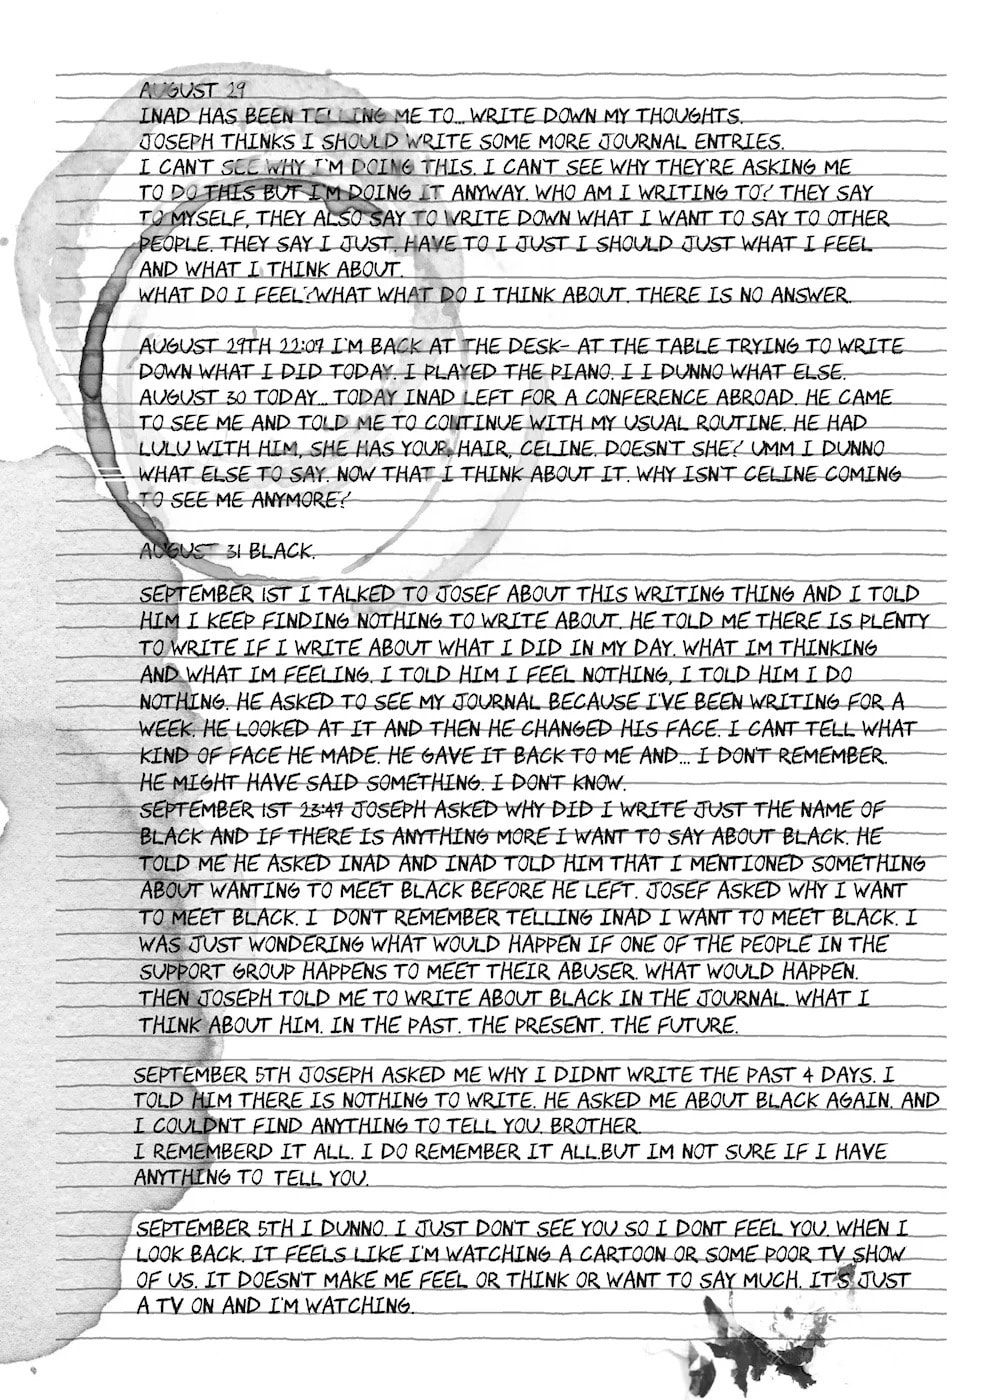 AUGUST 29
INAD HAS BEEN TELLING ME TO... WRITE DOWN MY THOUGHTS.
JOSEPH THINKS I SHOULD WRITE SOME MORE JOURNAL ENTRIES.
I CAN'T SEE WHY I'M DOING THIS. I CAN'T SEE WHY THEY'RE ASKING ME
TO DO THIS BUT I'M DOING IT ANYWAY. WHO AM I WRITING TO? THEY SAY
TO MYSELF, THEY ALSO SAY TO WRITE DOWN WHAT I WANT TO SAY TO OTHER
PEOPLE. THEY SAY I JUST. HAVE TO I JUST I SHOULD JUST WHAT I FEEL
AND WHAT I THINK ABOUT.
WHAT DO I FEEL?WHAT WHAT DO I THINK ABOUT. THERE IS NO ANSWER.

AUGUST 29TH 22:07 I'M BACK AT THE DESK- AT THE TABLE TRYING TO WRITE
DOWN WHAT I DID TODAY. I PLAYED THE PIANO. I I DUNNO WHAT ELSE.
AUGUST 30 TODAY... TODAY INAD LEFT FOR A CONFERENCE ABROAD. HE CAME
TO SEE ME AND TOLD ME TO CONTINUE WITH MY USUAL ROUTINE. HE HAD
LULU WITH HIM, SHE HAS YOUR HAIR, CELINE. DOESN'T SHE? UMM I DUNNO
WHAT ELSE TO SAY. NOW THAT I THINK ABOUT IT. WHY ISN'T CELINE COMING
TO SEE ME ANYMORE?

AUGUST 31 BLACK.

SEPTEMBER 1ST I TALKED TO JOSEF ABOUT THIS WRITING THING AND I TOLD
HIM I KEEP FINDING NOTHING TO WRITE ABOUT. HE TOLD ME THERE IS PLENTY
TO WRITE IF I WRITE ABOUT WHAT I DID IN MY DAY. WHAT IM THINKING
AND WHAT IM FEELING. I TOLD HIM I FEEL NOTHING, I TOLD HIM I DO
NOTHING. HE ASKED TO SEE MY JOURNAL BECAUSE I'VE BEEN WRITING FOR A
WEEK. HE LOOKED AT IT AND THEN HE CHANGED HIS FACE. I CANT TELL WHAT
KIND OF FACE HE MADE. HE GAVE IT BACK TO ME AND... I DON'T REMEMBER.
HE MIGHT HAVE SAID SOMETHING. I DON'T KNOW.
SEPTEMBER 1ST 23:47 JOSEPH ASKED WHY DID I WRITE JUST THE NAME OF
BLACK AND IF THERE IS ANYTHING MORE I WANT TO SAY ABOUT BLACK. HE
TOLD ME HE ASKED INAD AND INAD TOLD HIM THAT I MENTIONED SOMETHING
ABOUT WANTING TO MEET BLACK BEFORE HE LEFT. JOSEF ASKED WHY I WANT
TO MEET BLACK. I DON'T REMEMBER TELLING INAD I WANT TO MEET BLACK. I
WAS JUST WONDERING WHAT WOULD HAPPEN IF ONE OF THE PEOPLE IN THE
SUPPORT GROUP HAPPENS TO MEET THEIR ABUSER. WHAT WOULD HAPPEN.
THEN JOSEPH TOLD ME TO WRITE ABOUT BLACK IN THE JOURNAL. WHAT I
THINK ABOUT HIM. IN THE PAST. THE PRESENT. THE FUTURE.

SEPTEMBER 5TH JOSEPH ASKED ME WHY I DIDNT WRITE THE PAST 4 DAYS. I
TOLD HIM THERE IS NOTHING TO WRITE. HE ASKED ME ABOUT BLACK AGAIN. AND
I COULDN'T FIND ANYTHING TO TELL YOU. BROTHER.
I REMEMBERD IT ALL. I DO REMEMBER IT ALL.BUT IM NOT SURE IF I HAVE
ANYTHING TO TELL YOU.

SEPTEMBER 5TH I DUNNO. I JUST DON'T SEE YOU SO I DONT FEEL YOU. WHEN I
LOOK BACK. IT FEELS LIKE I'M WATCHING A CARTOON OR SOME POOR TV SHOW
OF US. IT DOESN'T MAKE ME FEEL OR THINK OR WANT TO SAY MUCH. IT'S JUST
A TV ON AND I'M WATCHING.